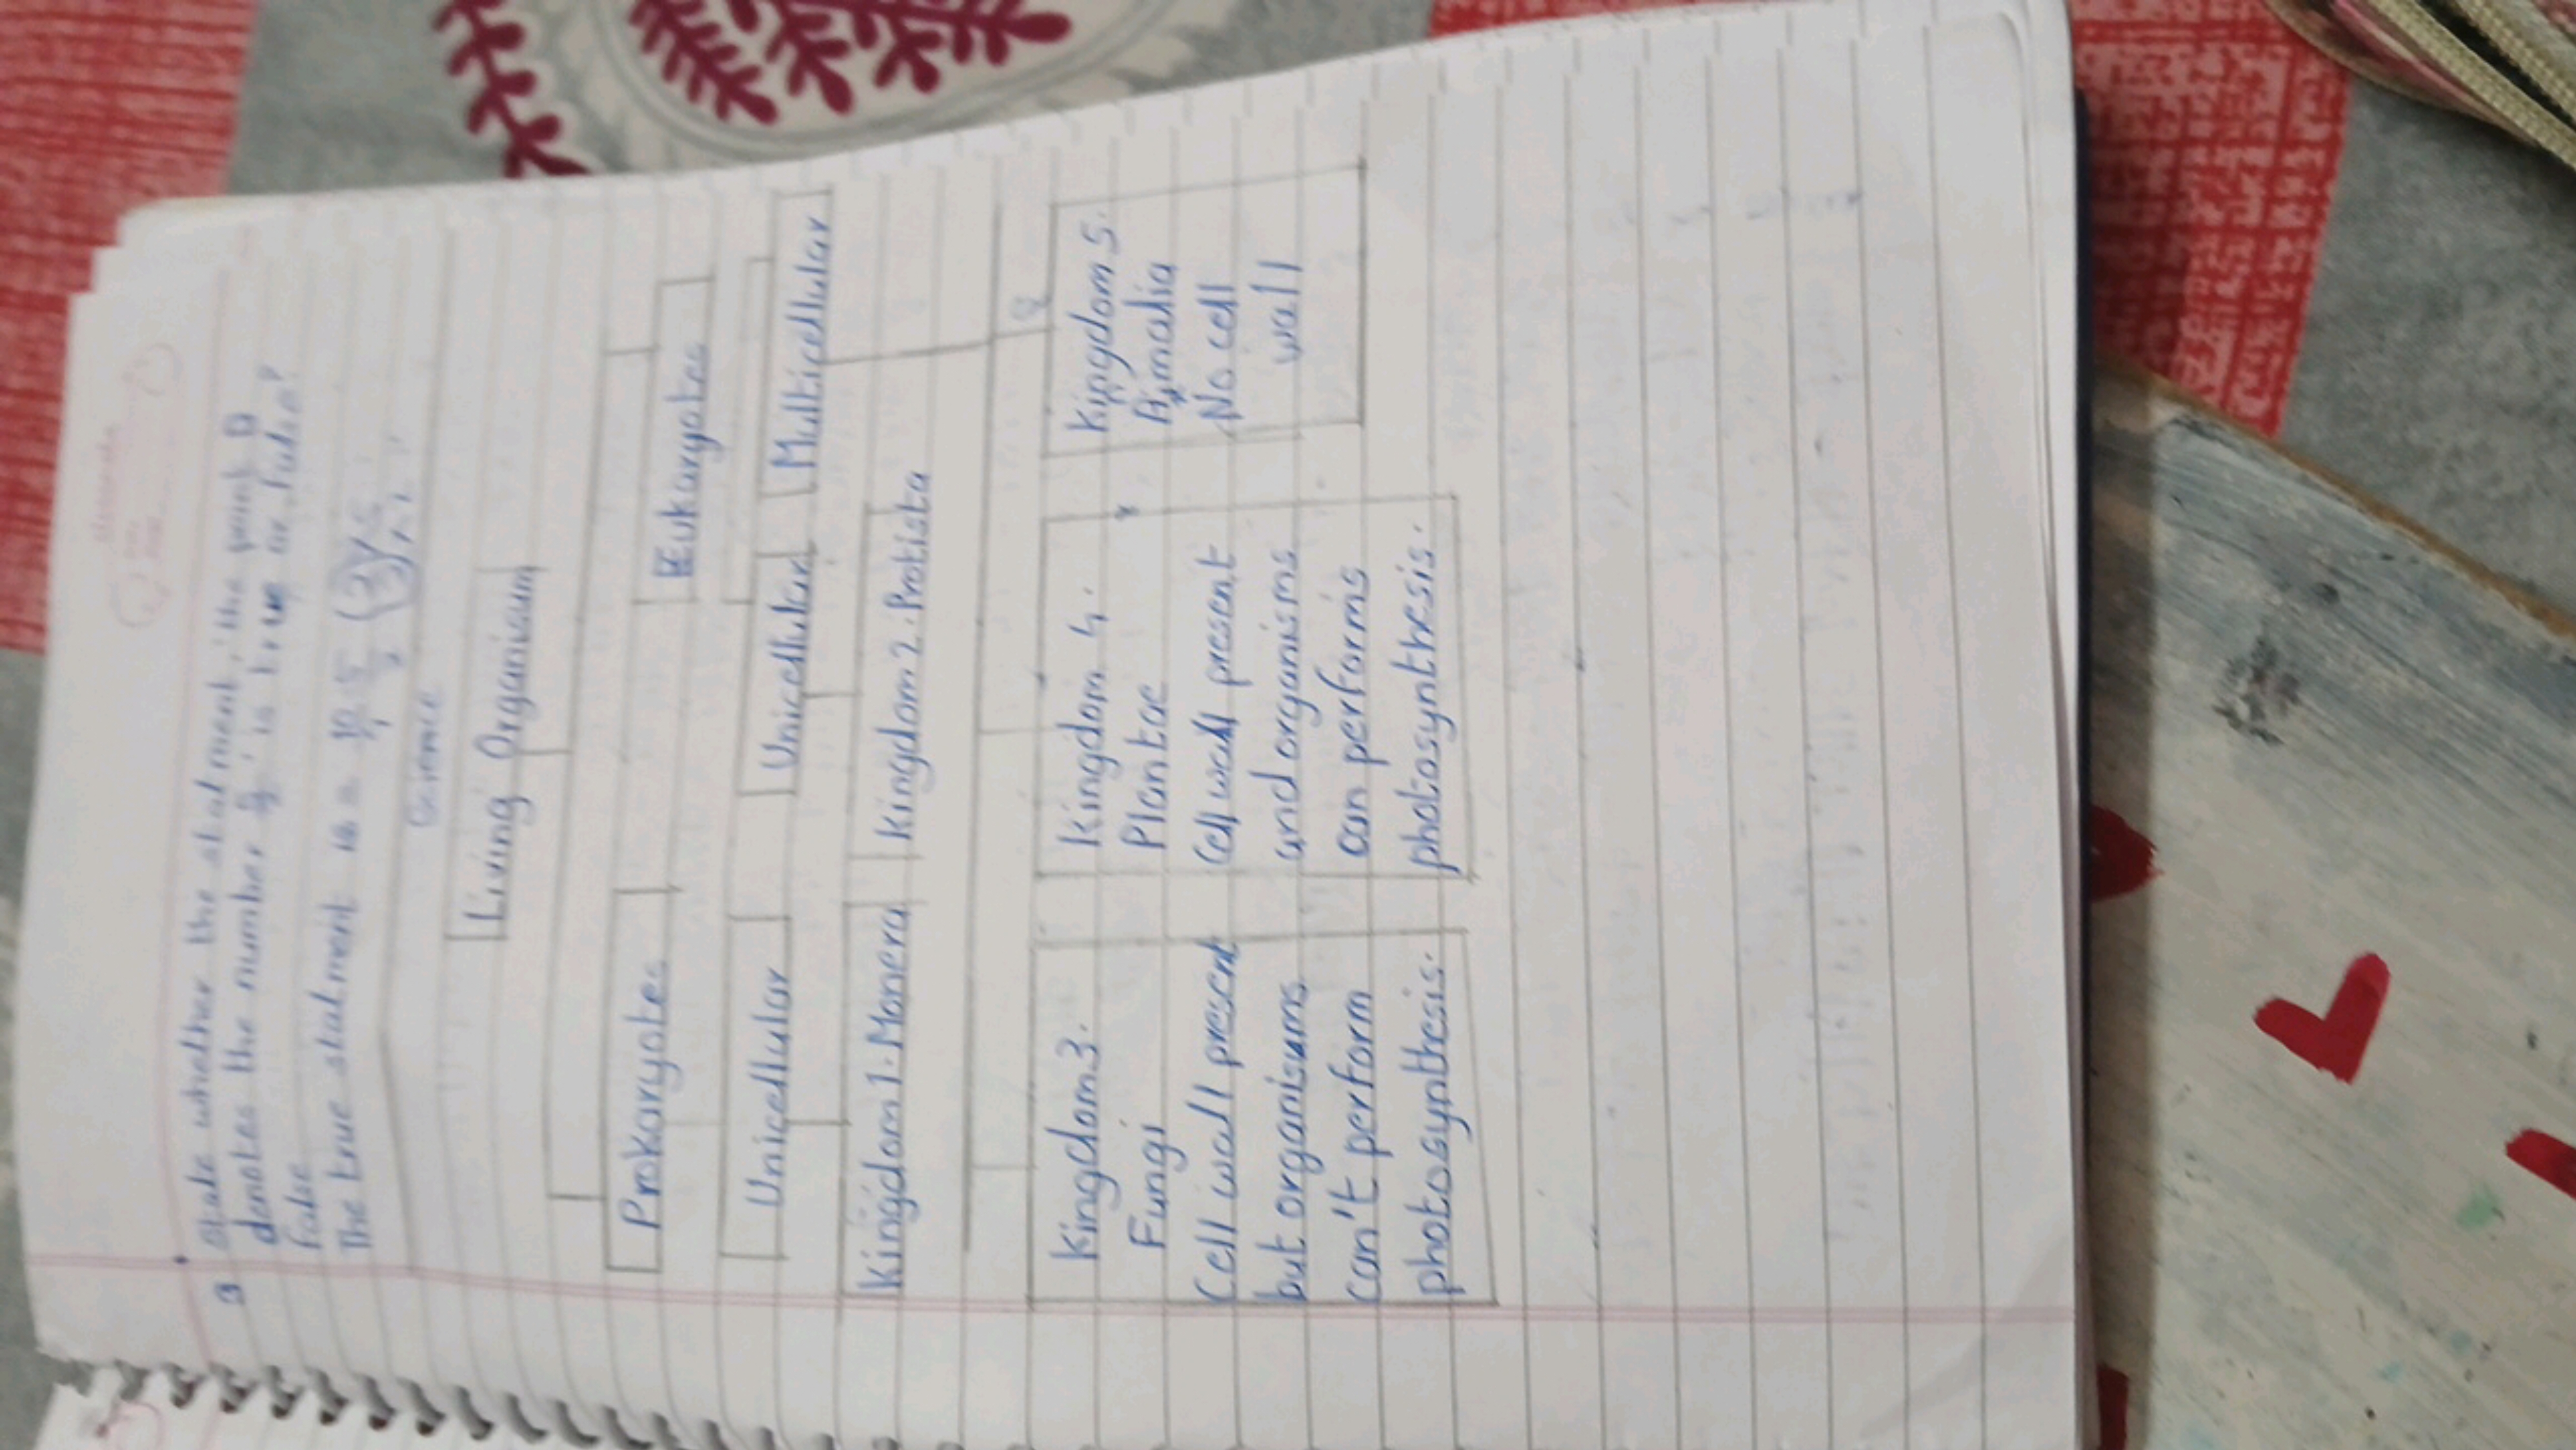 State whether the statement, 'the point D
denotes the number
is true or False?
False
The true statement is =
Science
Living Organisum
Prokaryotes
Eukaryotes
Unicellular
Unicellular
Multicellular
Kingdom 1. Monera
Kingdom 2. Protista
Kingdom 3.
Fungi
Cell wall present
but organisums
can't perform
photosynthesis.
Kingdom 4.
Plantae
Cell wall present
and organisms
can performs
photosynthesis.
Kingdom 5.
Animalia
No cell
wall